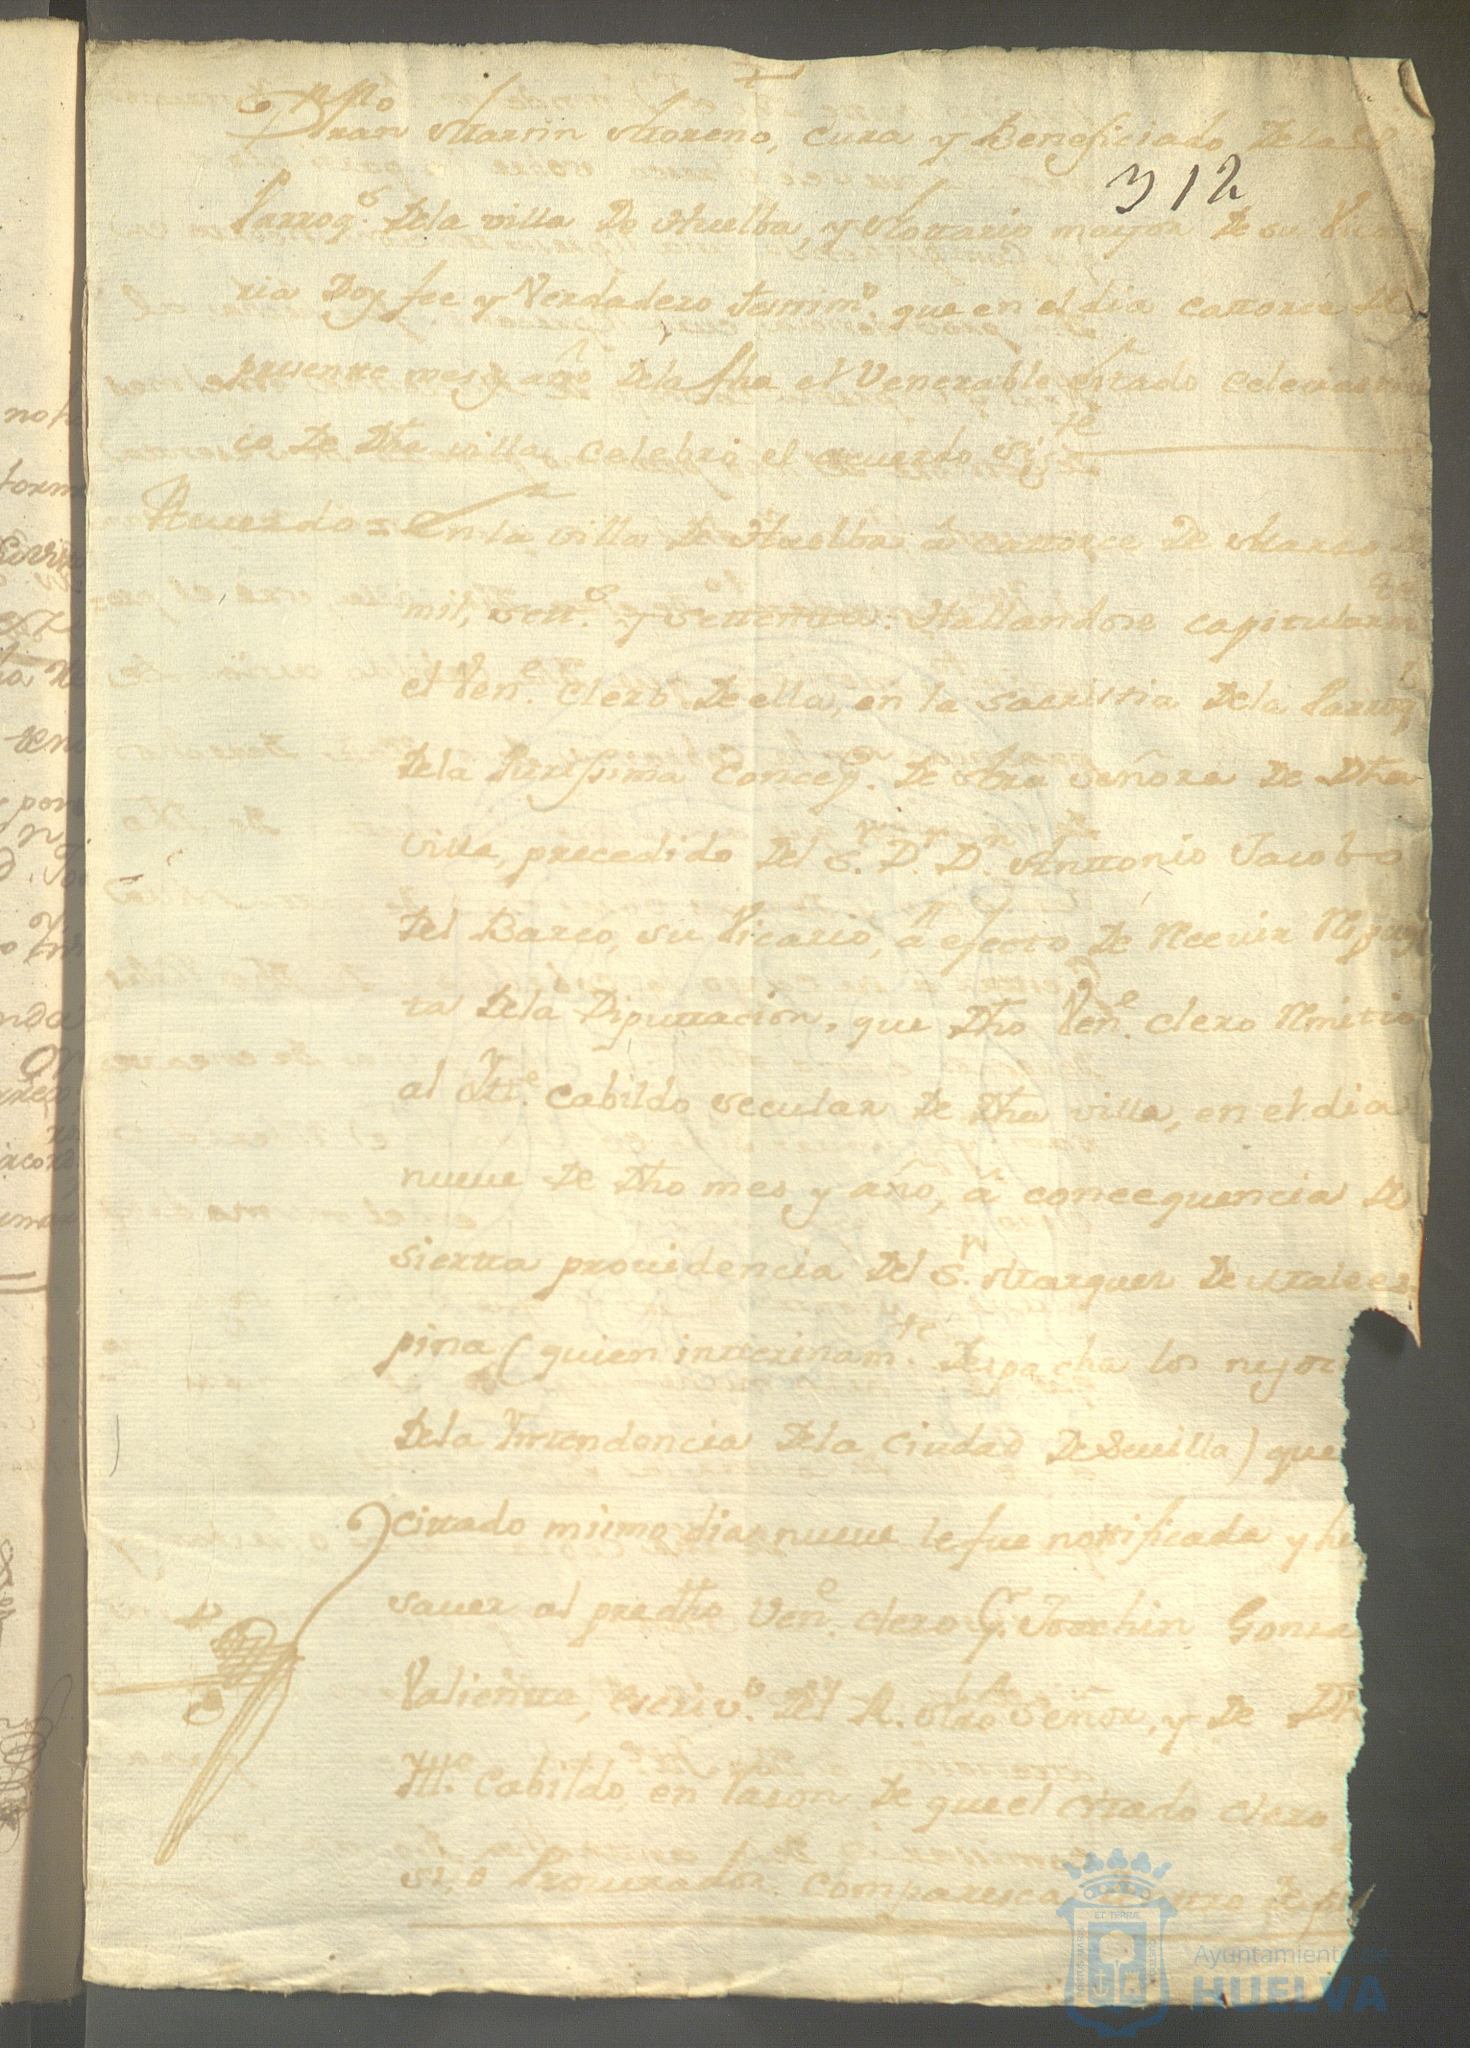 312
Fran Martin Moreno, Cura y Beneficiado De la
Parroq.l De la villa De Huelba, y Nottario mayor De su Vica
ria Doy fee y Verdadero testim.o que en el dia cattorce De
presente mes y año De la fha el Venerable estado eclesiasti
co De Dha villa, celebrò el acuerdo sig.te
Acuerdo = en la villa De Huelba à cattorce De Marzo
mil, sett.s y settentta: Hallandose capitularm.te
el Ven.e clero De ella, en la sacristia De la Parroq.l
De la Purissima Concep.n De Ntra Señora De Dha
villa, precedido Del S.r D.r D.n Anttonio Jacobo
Del Barco, su Vicario, à efecto De Recivir Respues
ta De la Diputtacion, que Dho Ven.e clero Remitio
al Itt.e Cabildo secular De Dha villa, en el dia
nueve De Dho mes y año, à concequencia De
sierta providencia Del S.r Marques De Malees
pina (quien intterinam.te Despacha los negoc
De la Inttendencia De la ciudad De Sevilla) que
cittado mismo dia nueve le fue nottificada y he
saver al predho Ven.e clero P.r Joachin Gonza
Valientte, escriv.o Del R. Ntro Señor, y De Dh
Itt.e Cabildo, en rason De que el cittado clero
si, o Procurador comparesca dentro De
Ayuntamiento de
HUELVA